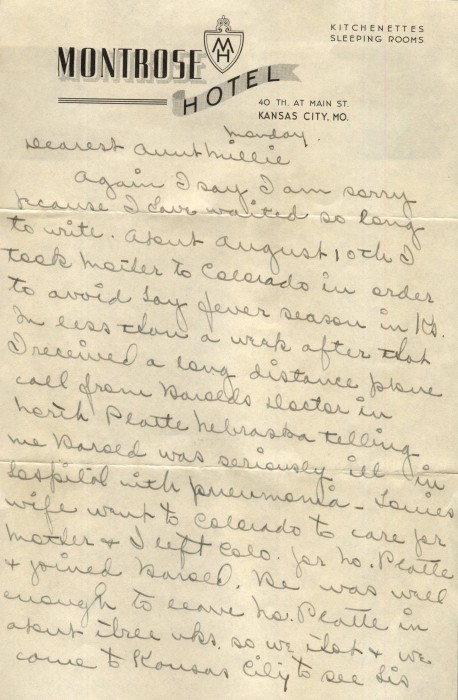 KITCHENETTES
SLEEPING ROOMS
MH
MONTROSE
HOTEL
40 TH. AT MAIN ST.
KANSAS CITY, MO.
Monday.
Dearest Aunt Millie
Again I say I am sorry
because I have waited so long
to write. About August 10th I
took Mother to Colorado in order
to avoid hay fever season in Ks.
In less than a week after that
I received a long distance phone
call from Harolds Doctor in
North Platte Nebraska telling
me Harold was seriously ill in
hospital with pneumonia - Louies
wife went to Colorado to care for
Mother & I left Colo. for No. Platte
& joined Harold. He was well
enough to leave No. Platte in
about three wks. so we & we
come to Kansas City to see his